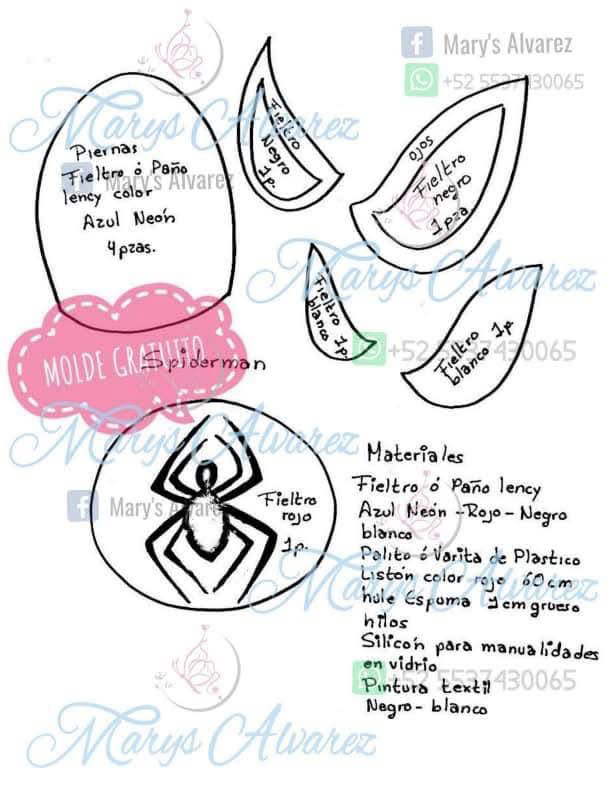 Mary's Alvarez
+52 5537430065
Marys Alvarez
Piernas
Fieltro ó Paño
lency color
Azul Neón
4 pzas.
Mary's Alvarez
Fieltro
Negro
1 p.
ojos
Fieltro
negro
1 pza
Marys Alvarez
Fieltro
blanco 1 p.
Fieltro 1 p
blanco
+52 5537430065
MOLDE GRATUITO
Spiderman
Marys Alvarez
Fieltro
rojo
1 p.
Mary's Alvarez
Materiales
Fieltro ó Paño lency
Azul Neón - Rojo - Negro
blanco
Palito ó Varita de Plastico
Listón color rojo 60 cm
hule Espuma 1 cm grueso
hilos
Silicón para manualidades
en vidrio
Pintura textil
Negro - blanco
Marys Alvarez
+52 5537430065
Marys Alvarez